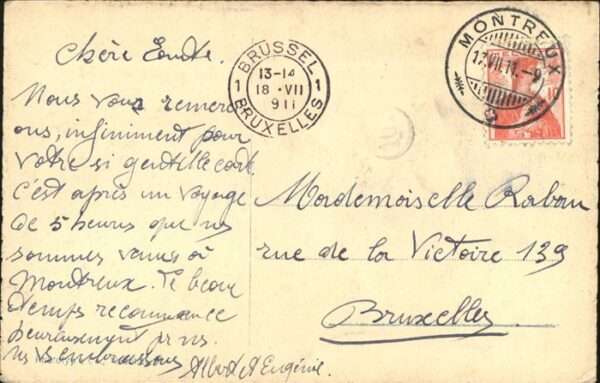 Chère Emilie.
Nous vous remerci
ons, infiniment pour
votre si gentille carte
c'est après un voyage
de 5 heures que ns
sommes venus à
Montreux. Le beau
temps recommence
heureusement pr ns.
ns vs embrassons
Albert et Eugénie.
BRUSSEL
1 1
13-14
18 · VII
911
BRUXELLES
MONTREUX
17.VII.11.-9
10
Mademoiselle Rabau
rue de la Victoire 139
Bruxelles.